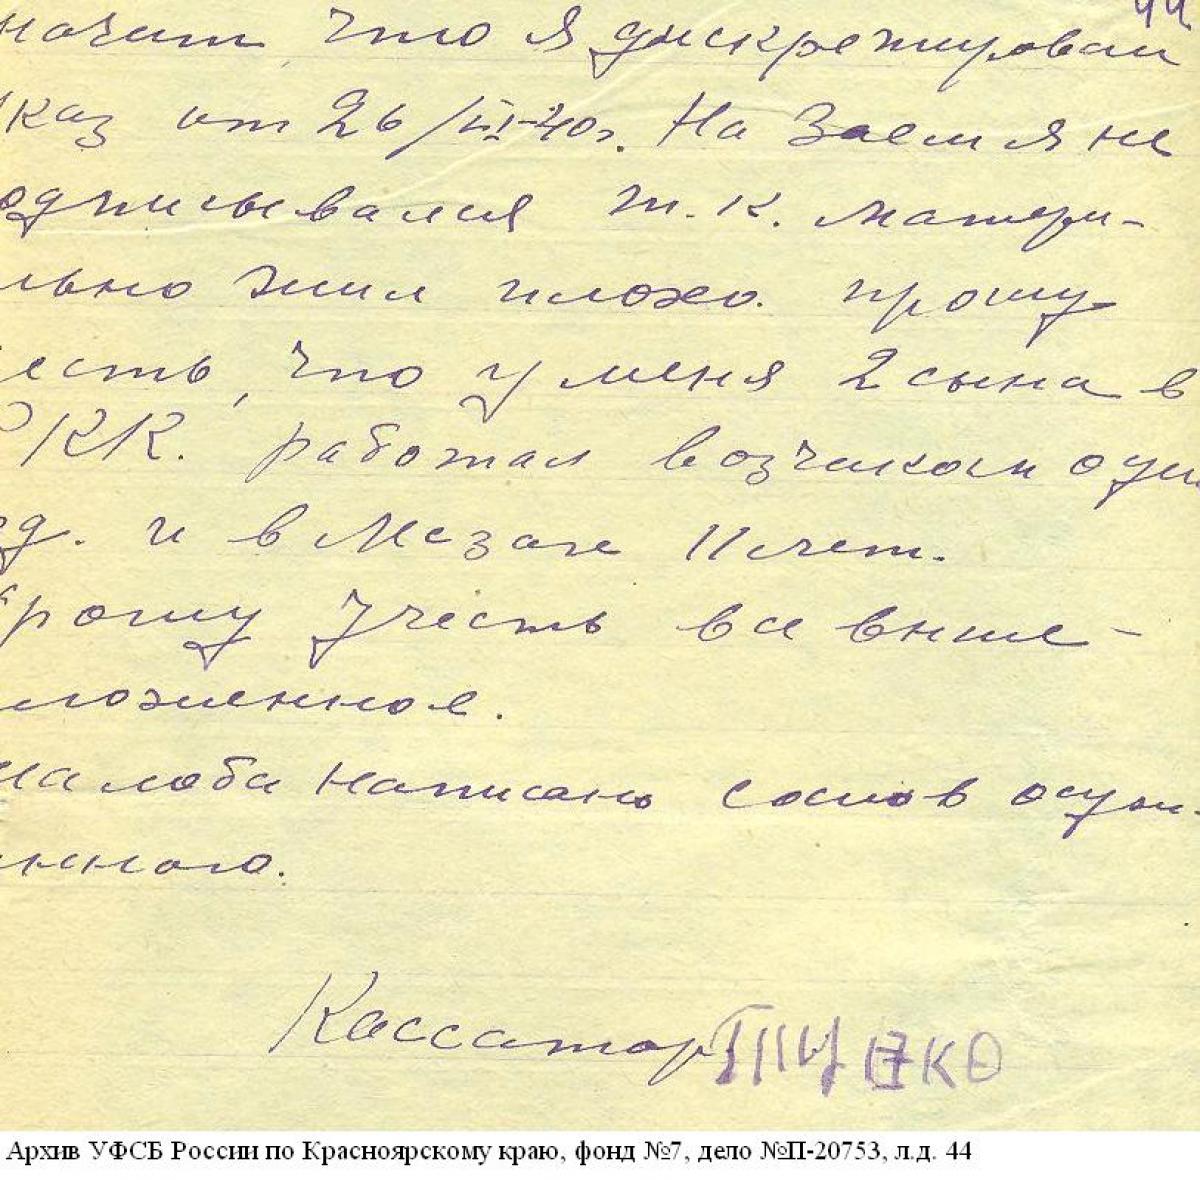 44
начит, что я дискретировал
каз от 26/VI-40г. На Заем я не
одписывался т.к. матери-
льно жил плохо. прошу
есть, что у меня 2 сына в
РККК. работал возчиком один
зд. и в Мезаж 11 лет.
Прошу Учесть все выше-
ложенное.
жалоба написано со слов осуж-
нного.
Кассатор
Архив УФСБ России по Красноярскому краю, фонд №7, дело №П-20753, л.д. 44